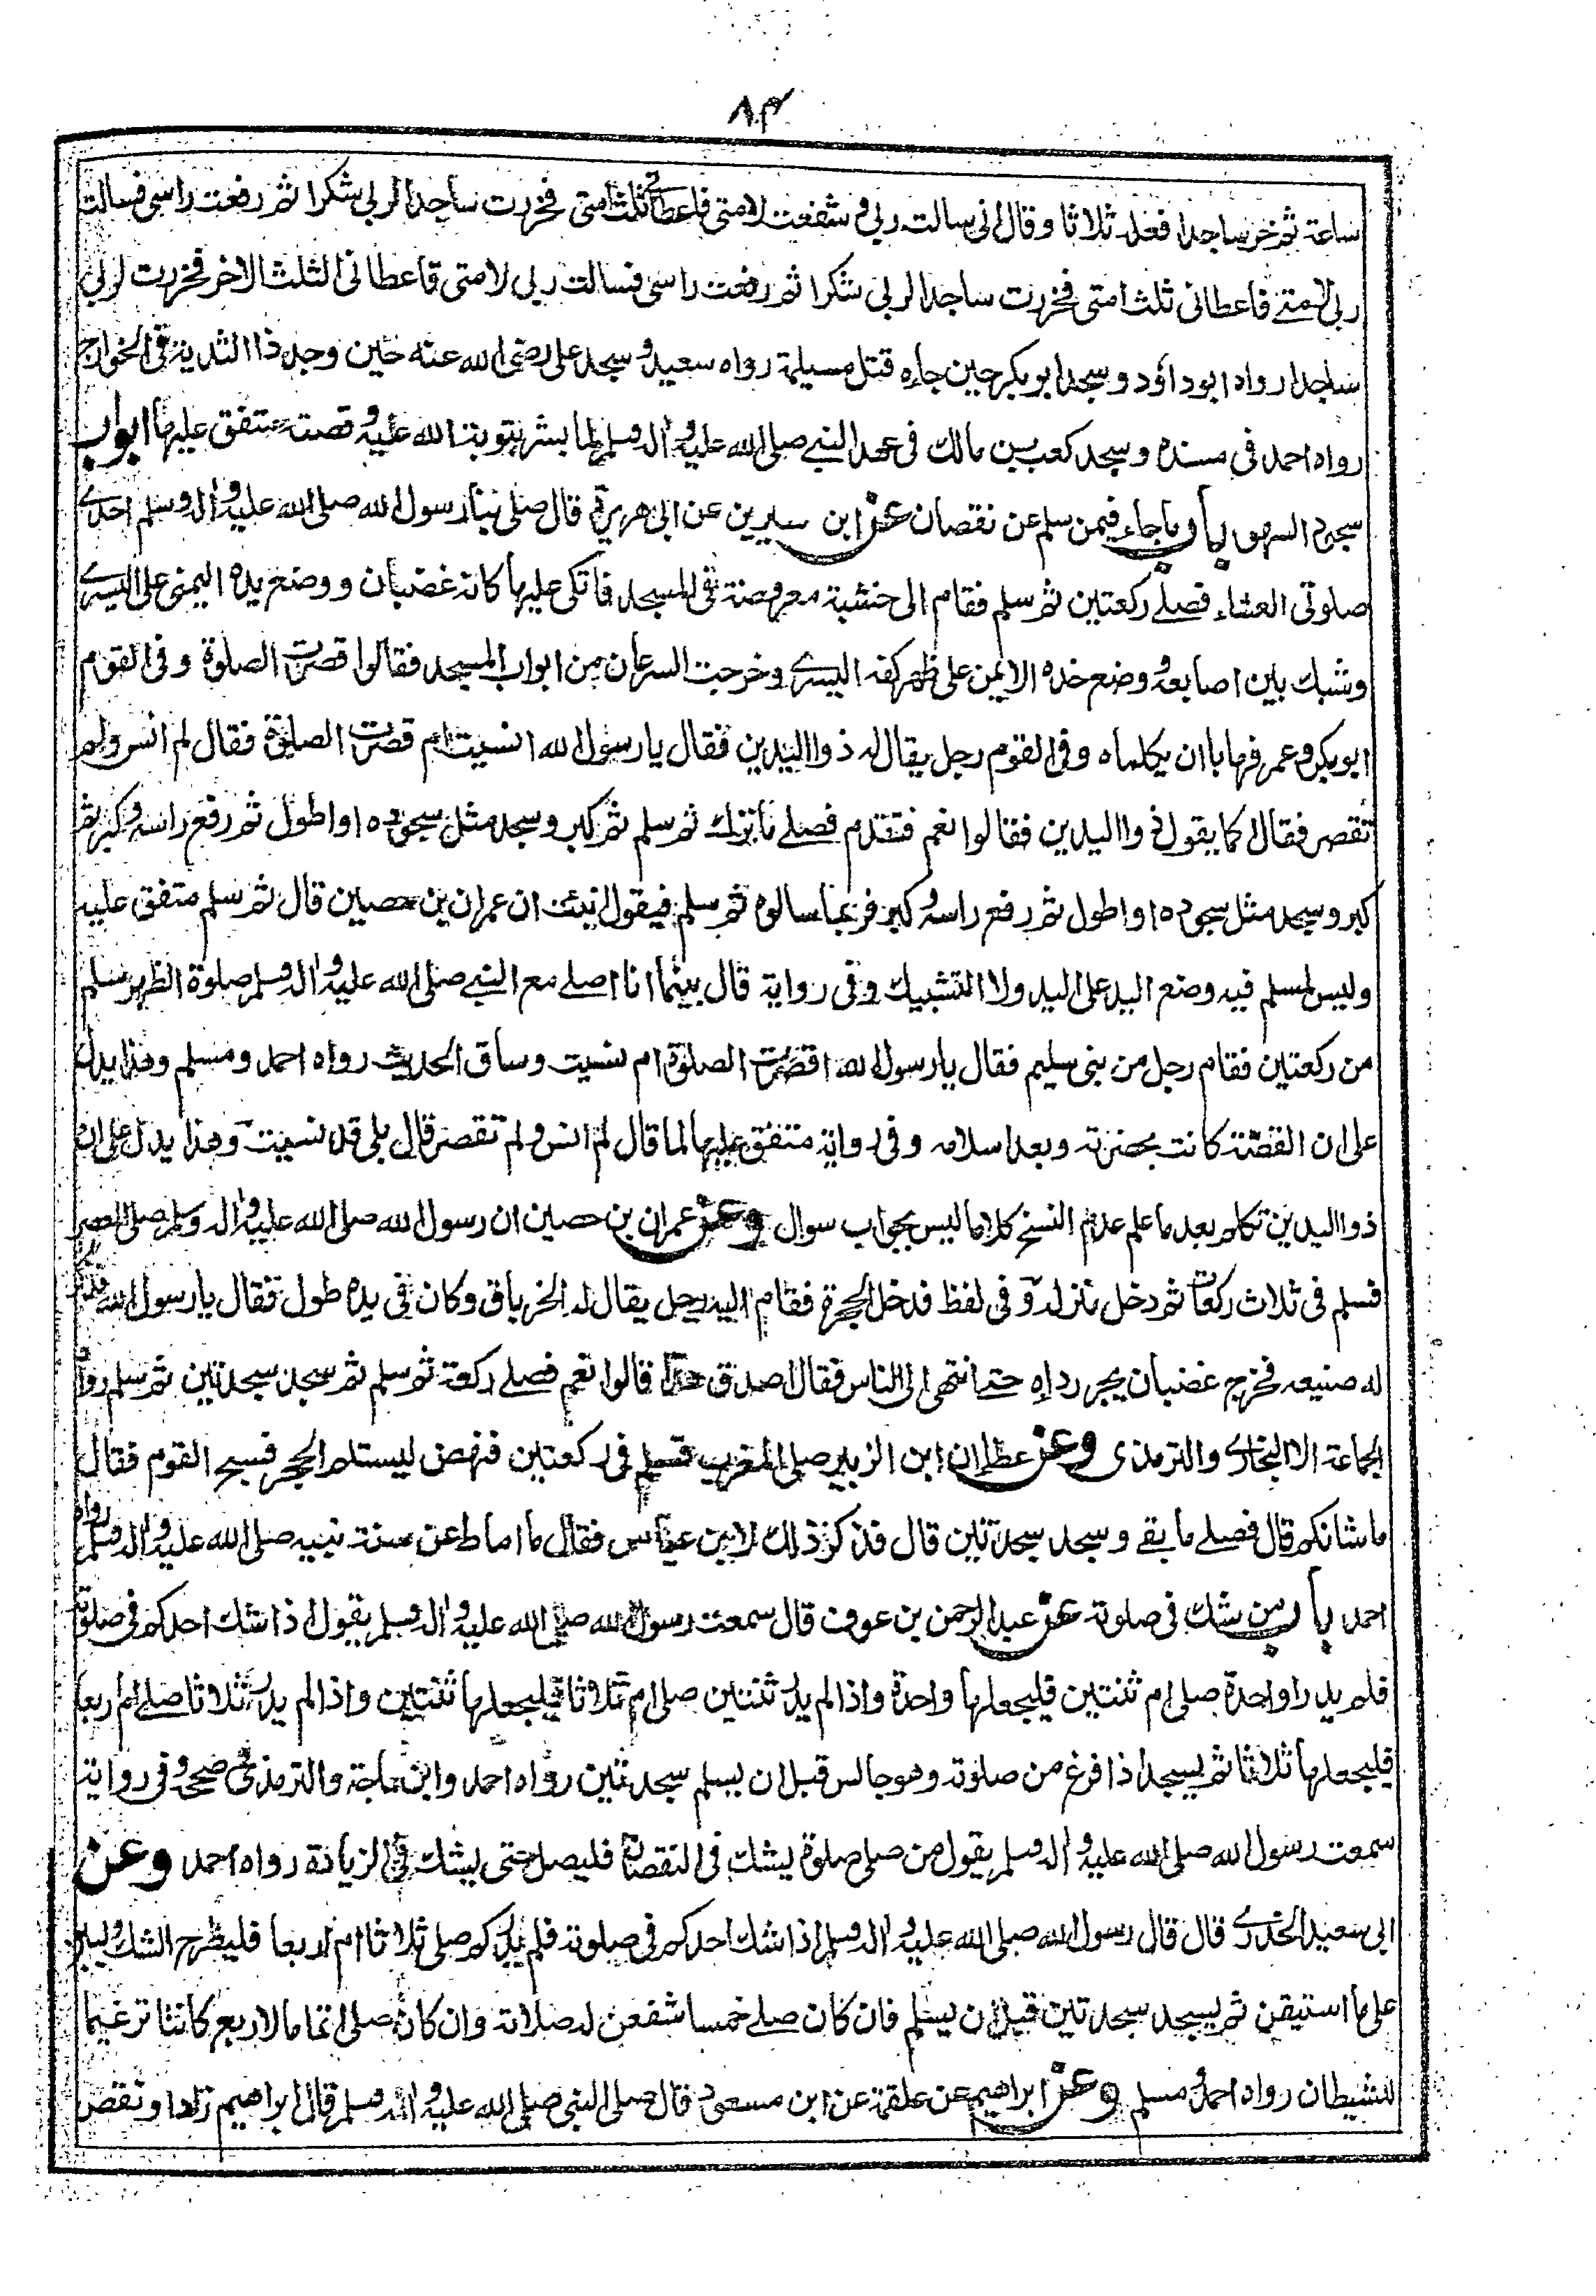 ٨٣
ساعة ثم خر ساجدا فعله ثلاثا وقال انى سالت ربى و شفعت لامتى فاعطانى ثلث امتى فخررت ساجدا لربى شكرا ثم رفعت راسى فسالت
ربى لامتے فاعطانى ثلث امتى فخررت ساجدا لربى شكرا ثم رفعت راسى فسالت ربى لامتى فاعطانى الثلث الاخر فخررت لربى
ساجدا رواه ابو داؤد و سجد ابو بكر حين جاءه قتل مسيلمة رواه سعيد و سجد على رضى الله عنه حين وجد ذا الثدية فى الخوارج
رواه احمد فى مسنده و سجد كعب بن مالك فى عهد النبے صلى الله عليه و اله وسلم لما بشر بتوبة الله عليه و قصته متفق عليها ابواب
سجود السهو باب ما جاء فيمن سلم عن نقصان عن ابن سيرين عن ابى هريرة قال صلى بنا رسول الله صلى الله عليه و اله وسلم احدے
صلوتى العشاء فصلے ركعتين ثم سلم فقام الى خشبة معروضة فى المسجد فاتكى عليها كانه غضبان و وضع يده اليمنى على اليسرے
وشبك بين اصابعه و وضع خده الايمن على ظهر كفه اليسرے و خرجت السرعان من ابواب المسجد فقالوا قصرت الصلوة و فى القوم
ابو بكر و عمر فهابا ان يكلماه و فى القوم رجل يقال له ذوا اليدين فقال يا رسول الله انسيت ام قصرت الصلوة فقال لم انس ولم
تقصر فقال اكما يقول ذوا اليدين فقالوا نعم فتقدم فصلے ما ترك ثم سلم ثم كبر و سجد مثل سجوده او اطول ثم رفع راسه و كبر ثم
كبر و سجد مثل سجوده او اطول ثم رفع راسه و كبر فربما سالوه ثم سلم فيقول انبئت ان عمران بن حصين قال ثم سلم متفق عليه
وليس لمسلم فيه وضع اليد على اليد ولا التشبيك و فى رواية قال بينما انا اصلے مع النبے صلى الله عليه و اله وسلم صلوة الظهر سلم
من ركعتين فقام رجل من بنى سليم فقال يا رسول الله اقصرت الصلوة ام نسيت وساق الحديث رواه احمد و مسلم وهذا يدل
على ان القصة كانت بحضرته و بعد اسلامه و فى رواية متفق عليها لما قال لم انس و لم تقصر قال بلى قد نسيت وهذا يدل على ان
ذوا اليدين تكلم بعد ما علم عدم النسخ كلاما ليس بجواب سوال وعن عمران بن حصين ان رسول الله صلى الله عليه و اله وسلم صلى العصر
فسلم فى ثلاث ركعات ثم دخل منزله و فى لفظ فدخل الحجرة فقام اليه رجل يقال له الخرباق وكان فى يده طول فقال يا رسول الله فذكر
له صنيعه فخرج غضبان يجر رداءه حتے انتهى الى الناس فقال اصدق هذا قالوا نعم فصلے ركعة ثم سلم ثم سجد سجدتين ثم سلم رواه
الجماعة الا البخارے والترمذى وعن عطاء ان ابن الزبير صلى المغرب فسلم فى ركعتين فنهض ليستلم الحجر فسبح القوم فقال
ما شانكم قال فصلے ما بقے و سجد سجدتين قال فذكر ذلك لابن عباس فقال ما اماط عن سنة نبيه صلى الله عليه و اله وسلم رواه
احمد باب من شك فى صلوته عن عبد الرحمن بن عوف قال سمعت رسول الله صلى الله عليه و اله وسلم يقول اذا شك احدكم فى صلوته
فلم يدر اواحدة صلى ام ثنتين فليجعلها واحدة واذا لم يدر ثنتين صلى ام ثلاثا فليجعلها ثنتين واذا لم يدر ثلاثا صلے ام اربعا
فليجعلها ثلاثا ثم يسجد اذا فرغ من صلوته وهو جالس قبل ان يسلم سجدتين رواه احمد وابن ماجة والترمذى وصححه و فى رواية
سمعت رسول الله صلى الله عليه و اله وسلم يقول من صلى صلوة يشك فى النقصان فليصل حتى يشك فى الزيادة رواه احمد وعن
ابى سعيد الخدرے قال قال رسول الله صلى الله عليه و اله وسلم اذا شك احدكم فى صلوته فلم يدر كم صلى ثلاثا ام اربعا فليطرح الشك وليبن
على ما استيقن ثم يسجد سجدتين قبل ان يسلم فان كان صلے خمسا شفعن له صلاته وان كان صلى اتماما لاربع كانتا ترغيما
للشيطان رواه احمد و مسلم وعن ابراهيم عن علقمة عن ابن مسعود قال صلى النبى صلى الله عليه و اله وسلم قال ابراهيم زاد او نقص